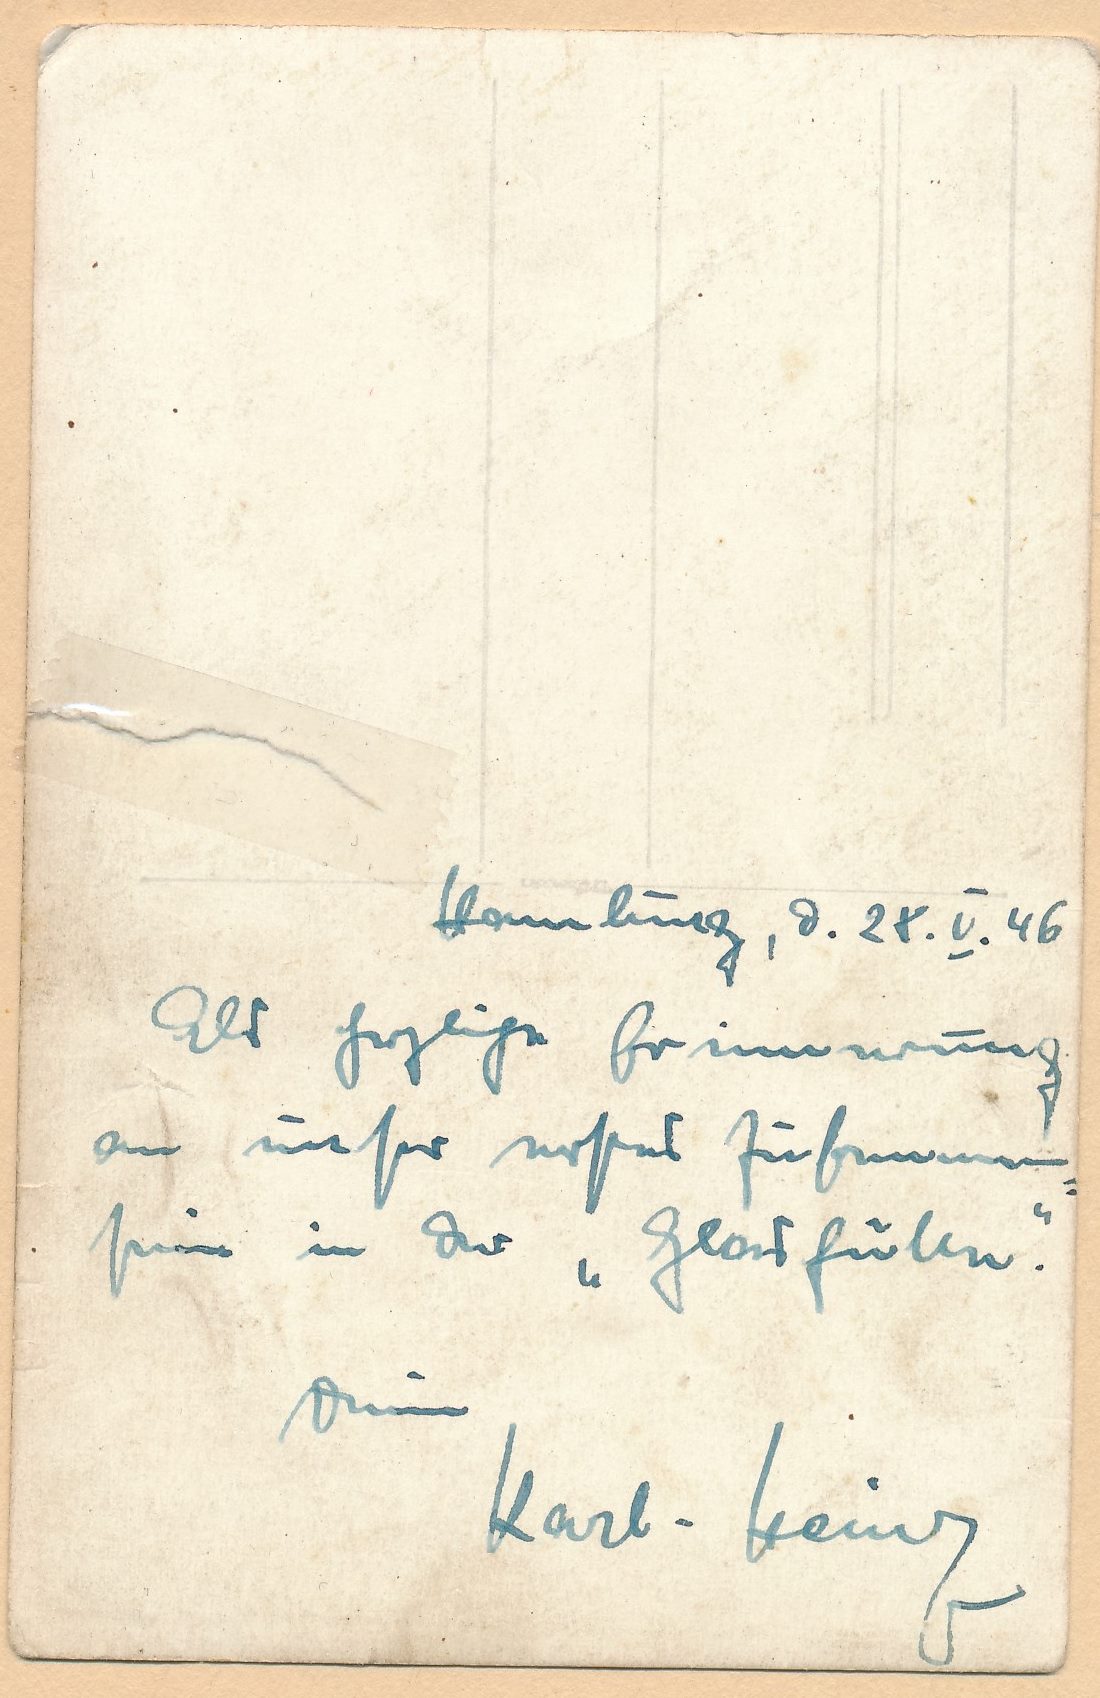 Hamburg, d. 28. V. 46
Als herzliche Erinnerung
an unser erstes Zusammen-
sein in der „Glashütten“.
Dein
Karl-Heinz